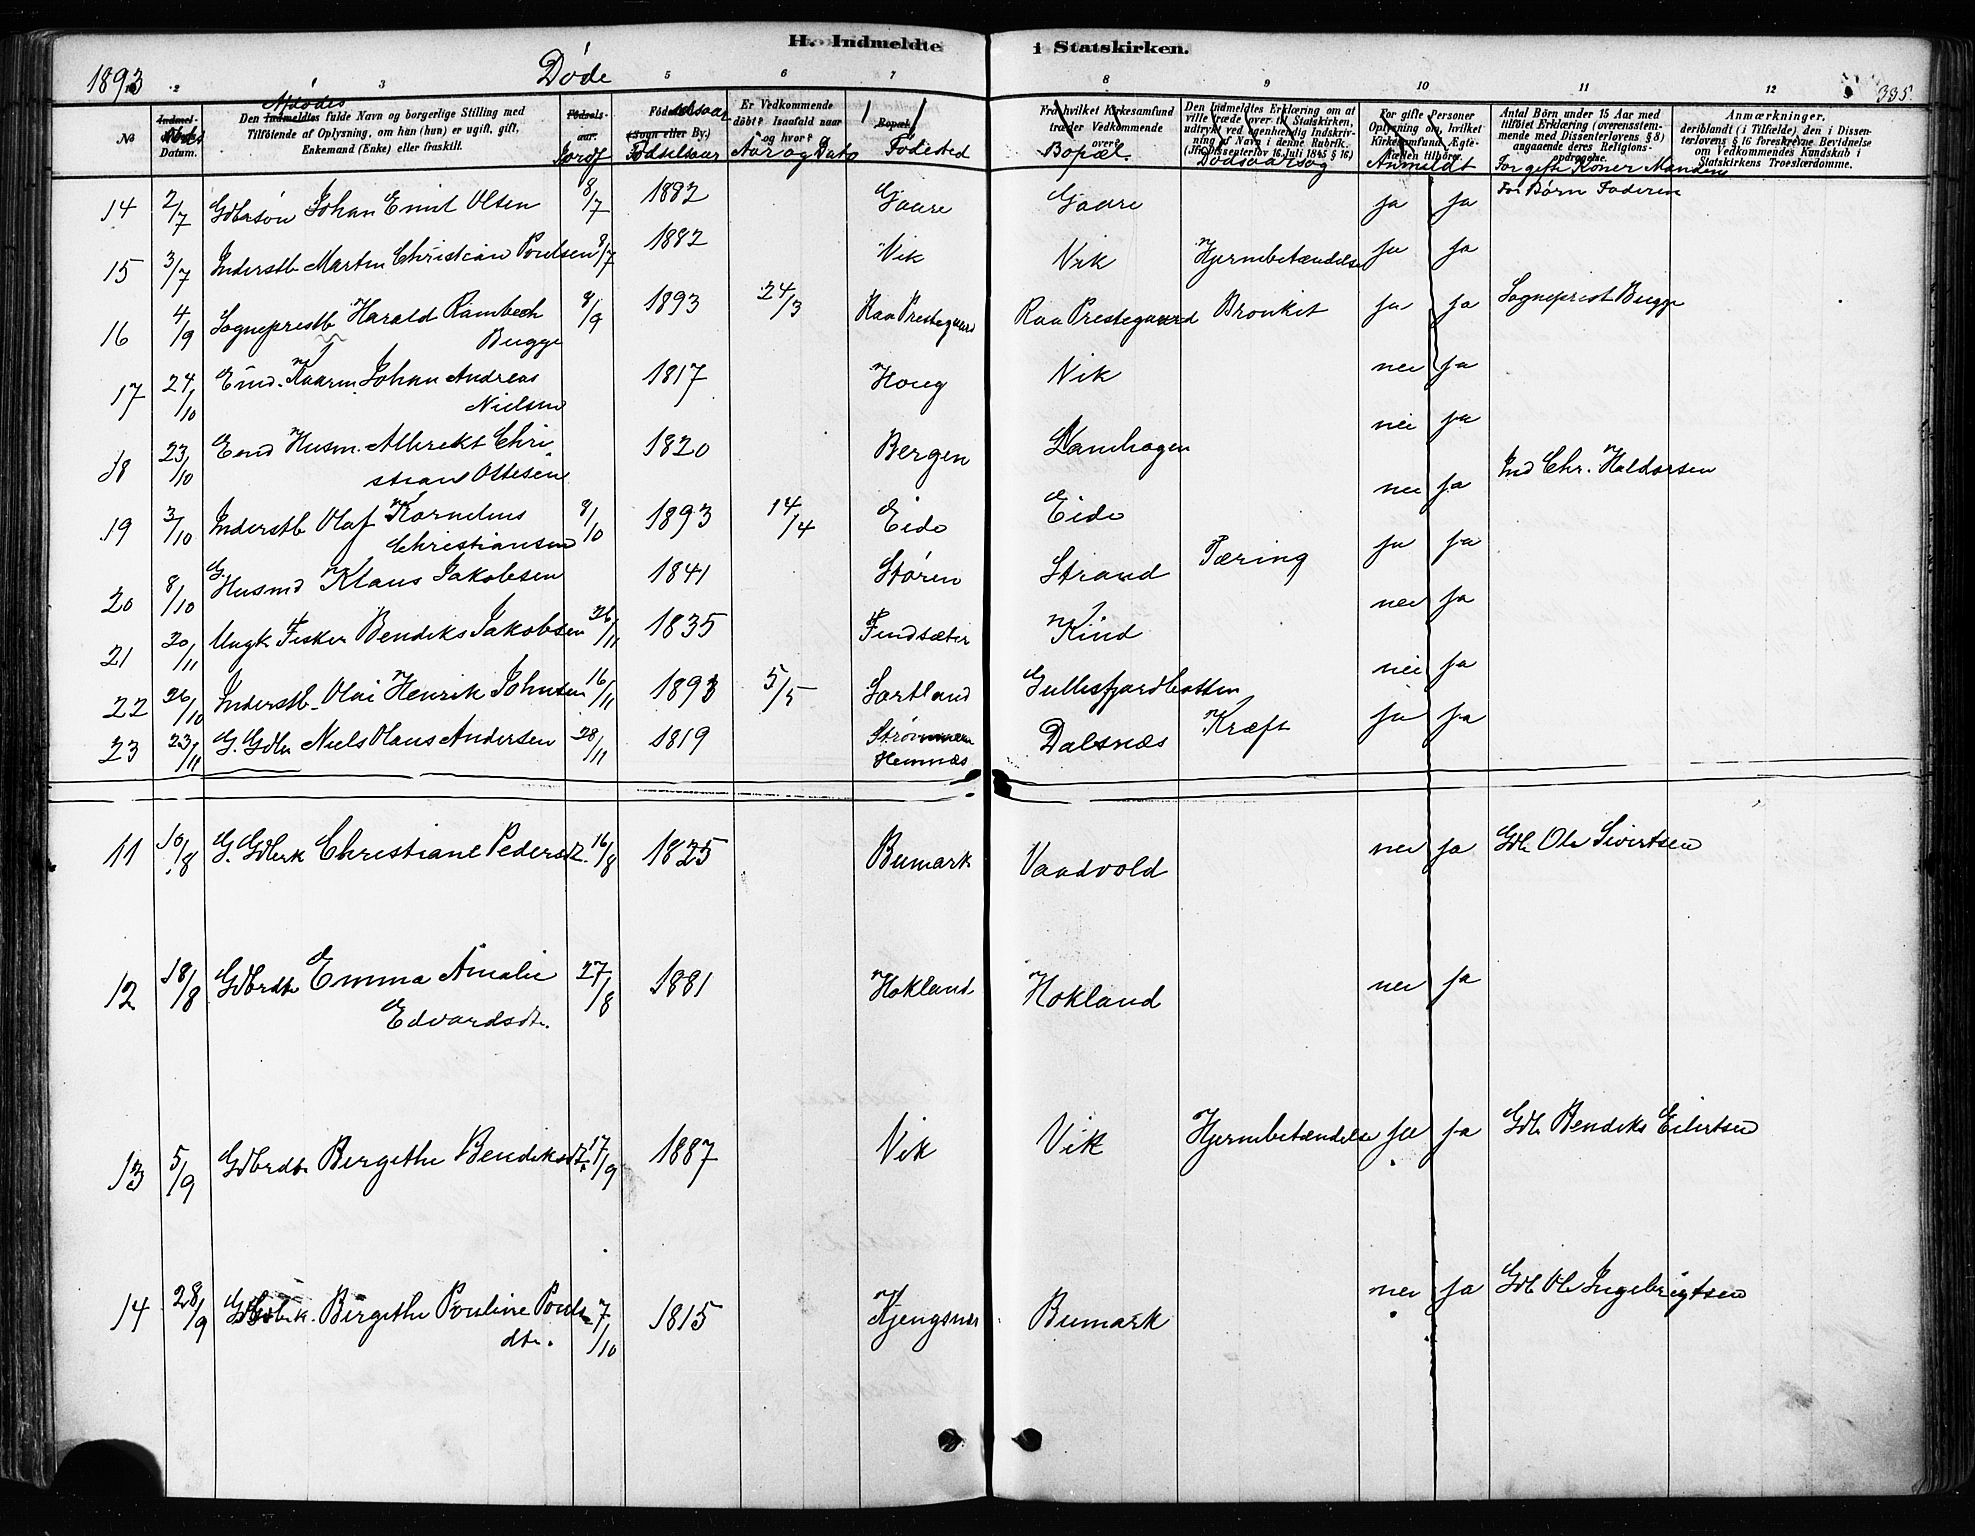 H. Indmeldte i Statskirken.
1893 Døde 385.
2 3 5 6 7 8 9 10 11 12
№
Indmeldelses Datum. Døds
Den Indmeldtes fulde Navn og borgerlige Stilling med Tilføiende af Oplysning, om han (hun) er ugift, gift, Enkemand (Enke) eller fraskilt. Afdødes
Fødselsaar. Jordf
Fødested (Sogn eller By.) Fødselsaar
Er Vedkommende døbt? Isaafald naar og hvor? Aar og Dato
Bopæl. Fødested
Fra hvilket Kirkesamfund træder Vedkommende over? Bopæl.
Den Indmeldtes Erklæring om at ville træde over til Statskirken, udtrykt ved egenhændig Indskrivning af Navn i denne Rubrik. (Jfr. Dissenterlov 16 Juli 1845 § 16) Dødsaarsag
For gifte Personer Oplysning om, hvilket Kirkesamfund Ægtefællen tilhører. Anmeldt
Antal Børn under 15 Aar med tilføiet Erklæring (overensstemmende med Dissenterlovens § 8) angaaende deres Religionsopdragelse. For gifte Koner Manden
For Børn Faderen
Anmærkninger, deriblandt (i Tilfælde), den i Dissenterlovens § 16 foreskrevne Bevidnelse om Vedkommendes Kundskab i Statskirkens Troeslærdomme.
14 2/7 Gdbrsøn Johan Emil Olsen 8/7 1882 Gaare Gaare ja ja
15 3/7 Inderstb Martin Christian Poulsen 9/7 1882 Vik Vik Hjernebetændelse ja ja
16 4/9 Sogneprestb Harald Rambech Bugge 9/9 1893 24/3 Raa Prestegaard Raa Prestegaard Bronkit ja ja Sogneprest Bugge
17 24/10 End. Kaarm. Johan Andreas Nielsen 1817 Houg Vik nei ja
18 23/10 Emd Husm. Albrekt Christian Ottesen 1820 Bergen Lamhagen nei ja
19 3/10 Inderstb Olaf Kornelius Christiansen 8/10 1893 14/4 Eide Eide nei ja Ind Chr. Haldorsen
20 8/10 G. Husmd Klaus Jakobsen 1841 Støren Strand Tæring ja ja
21 20/11 Ungk Fisker Bendiks Jakobsen 26/11 1835 Findsæter Kind nei ja
22 26/10 Inderstb. Olai Henrik Johnsen 16/11 1893 5/5 Sortland Gullesfjordbotten nei ja
23 23/11 G. Gdbr Niels Olaus Andersen 28/11 1819 Strømmen Hemnæs Dalsnæs Kræft ja ja
11 10/8 G. Gdbrk Christiane Pedersdt. 16/8 1825 Bumark Vaadvold nei ja Gdb Ole Sivertsen
12 18/8 Gdbrdt Emma Amalie Edvardsdt. 27/8 1881 Hokland Hokland nei ja
13 5/9 Gdbrdt Bergithe Bendiksdt. 17/9 1887 Vik Vik Hjernebetændelse ja ja Gdb Bendiks Eilertsen
14 28/9 Bergithe Pouline Pouls dt. 7/10 1815 Kjengsnes Bumark nei ja Gdb Ole Ingebrigtsen